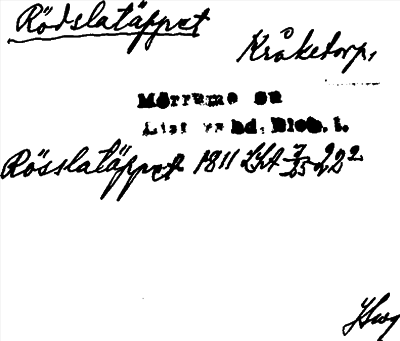 Rödslatäppet
Kråketorp,
Mörrums sn
Lister hd, Blek. l.
Rösslatäppet 1811 LSA